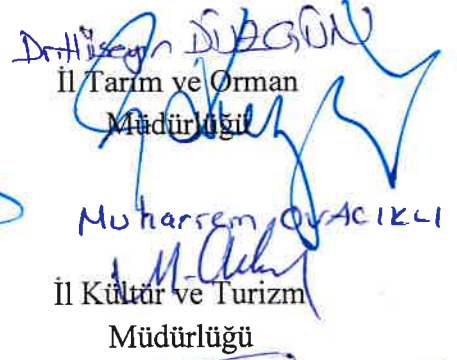 Dr. Hüseyin DÜZGÜN
İl Tarım ve Orman
Müdürlüğü
Muharrem OVACIKLI
İl Kültür ve Turizm
Müdürlüğü